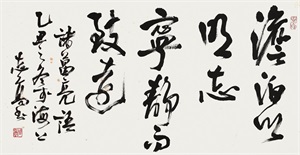 澹泊以
明志
寧靜而
致遠
諸葛亮語
乙丑之冬於海上